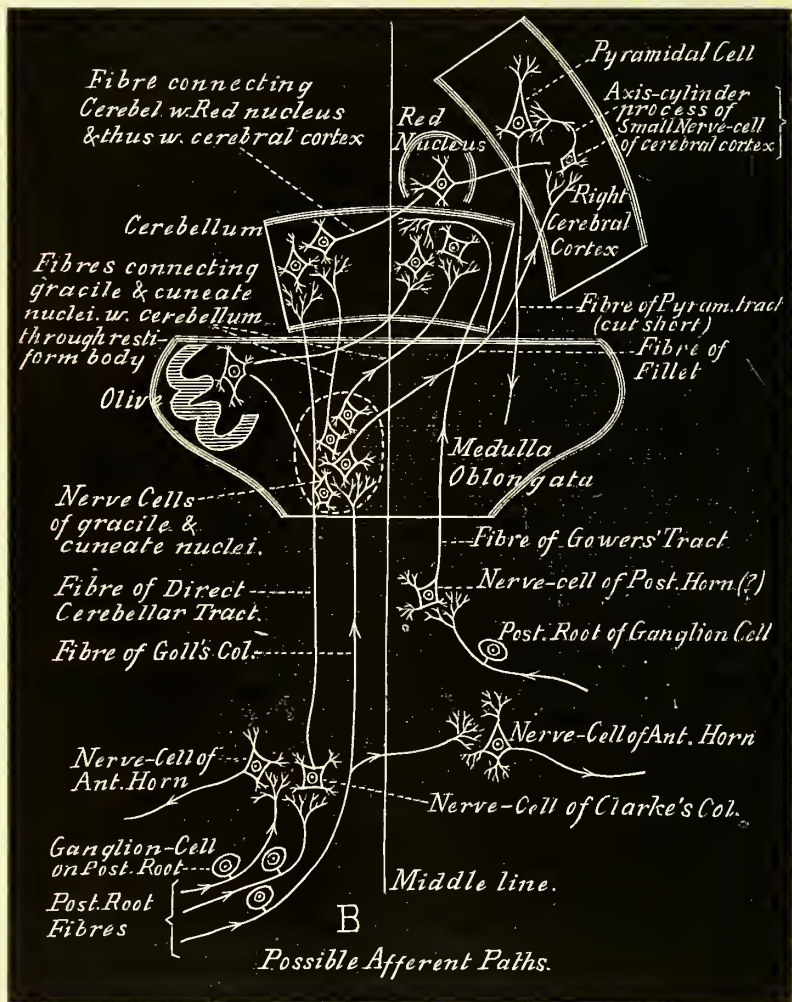 Pyramidal Cell
Fibre connecting
Cerebel w. Red nucleus
& thus w. cerebral cortex
Axis-cylinder
process of
Small Nerve-cell
of cerebral cortex
Red
Nucleus
Right
Cerebral
Cortex
Cerebellum
Fibres connecting
gracile & cuneate
nuclei. w. cerebellum
through resti-
form body
Fibre of Pyram. tract
(cut short)
Fibre of
Fillet
Olive
Medulla
Oblongata
Nerve Cells
of gracile &
cuneate nuclei.
Fibre of Gowers' Tract
Nerve-cell of Post. Horn (?)
Fibre of Direct
Cerebellar Tract.
Post. Root of Ganglion Cell
Fibre of Goll's Col.
Nerve-Cell of
Ant. Horn
Nerve-Cell of Ant. Horn
Nerve-Cell of Clarke's Col.
Ganglion-Cell
on Post. Root
Post. Root
Fibres
Middle line.
B
Possible Afferent Paths.